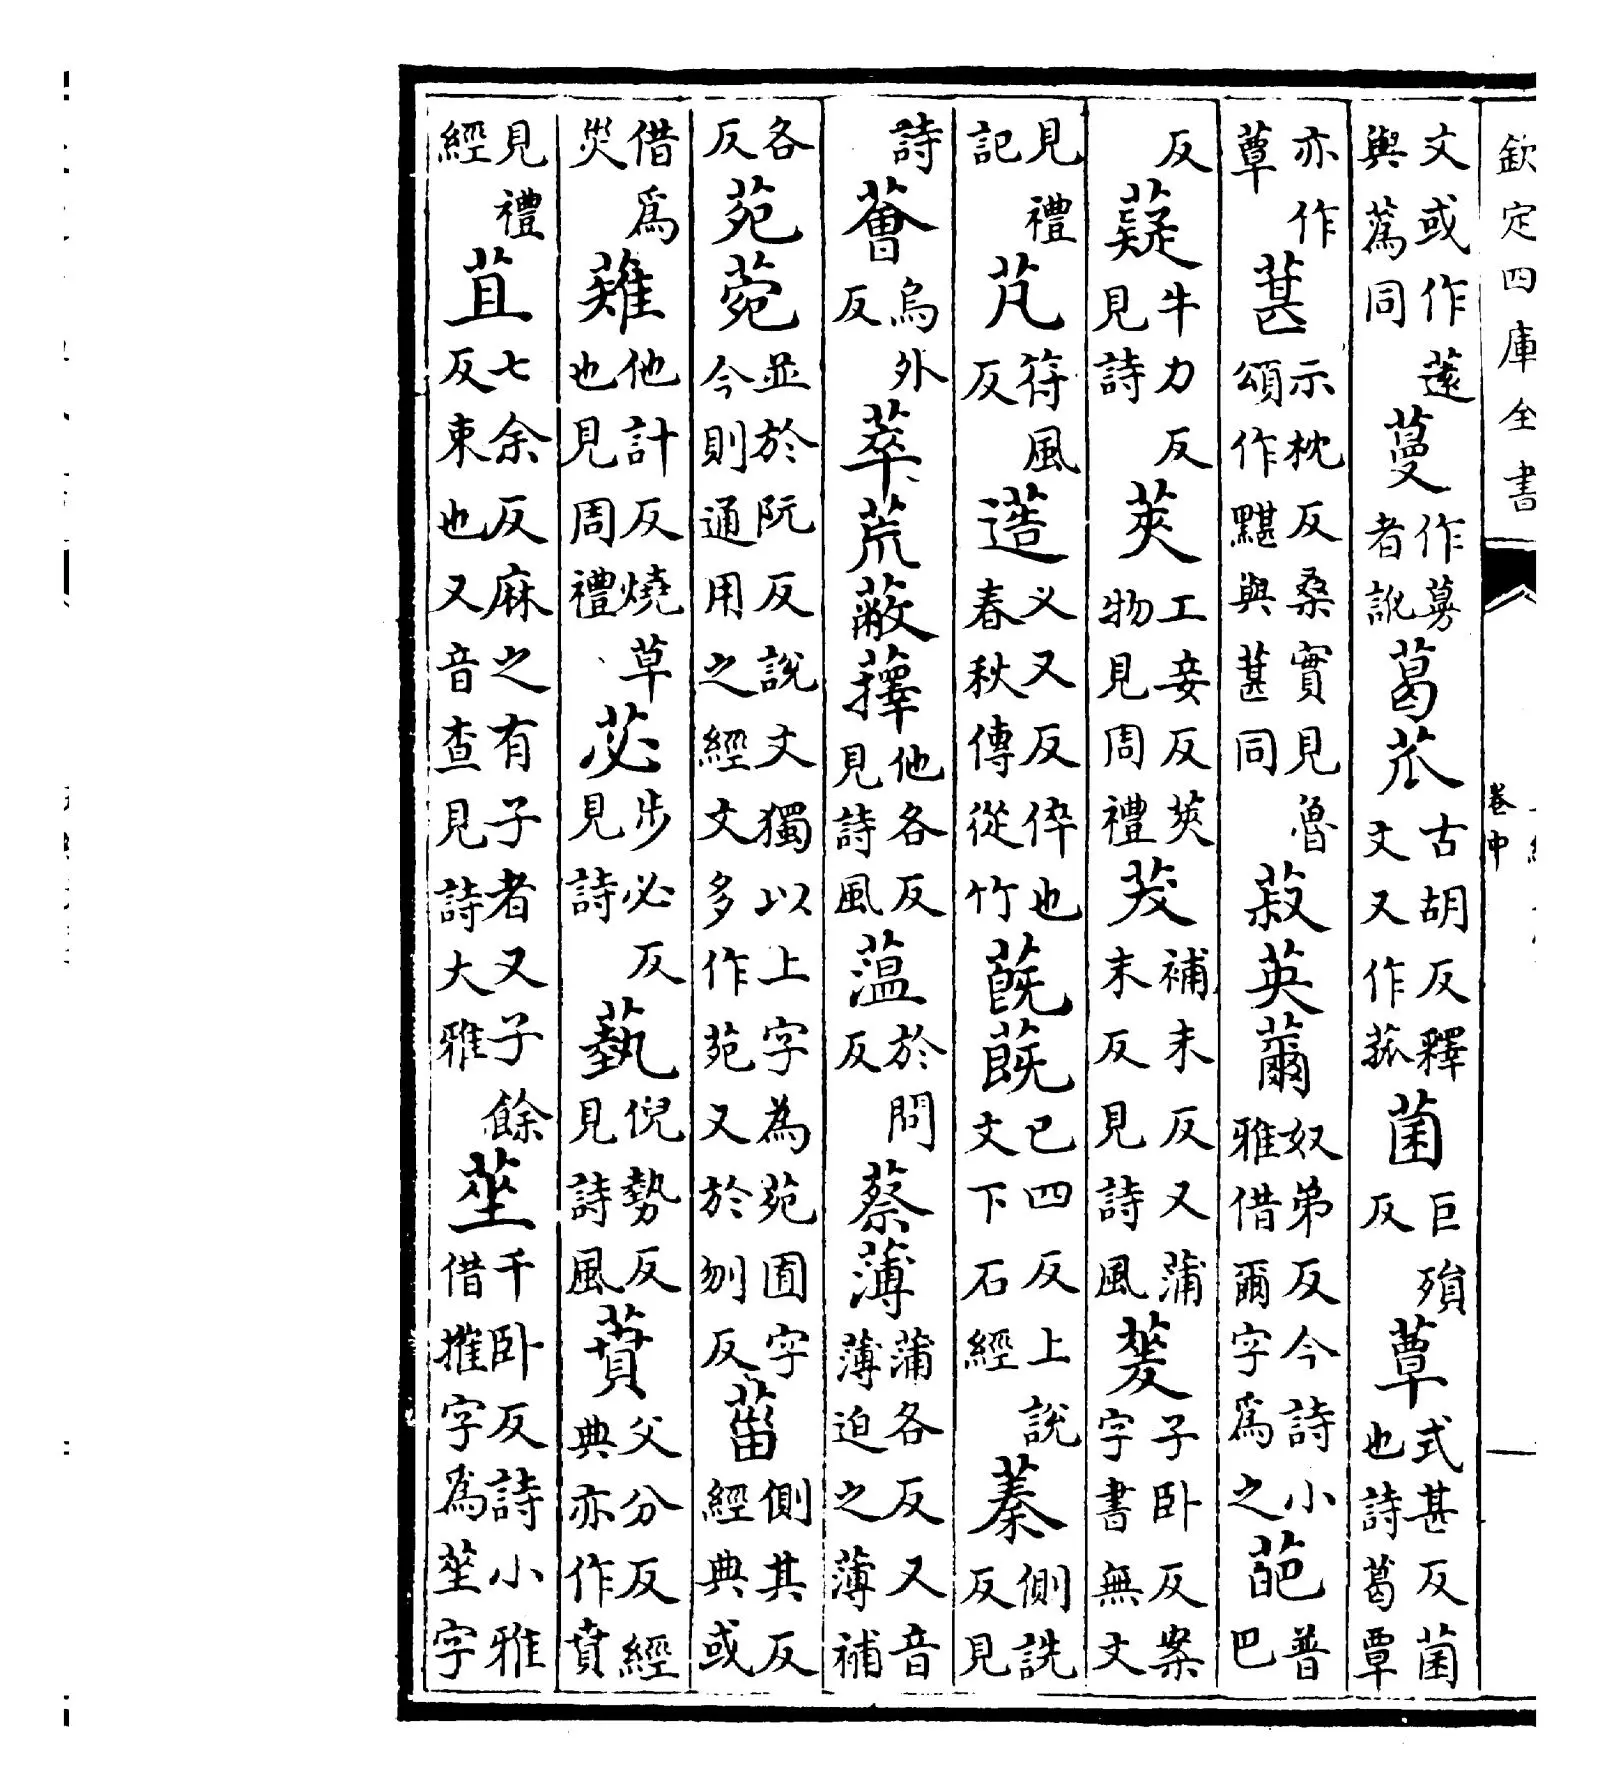 欽定四庫全書 卷中
文或作薳與蒍同蔓作蒡者訛葛苽古胡反釋文又作菰菌巨殞反蕈式甚反菌也詩葛覃
亦作蕈葚示枕反桑實見魯頌作黮與葚同菽英薾奴弟反今詩小雅借爾字爲之葩普巴
反薿牛力反見詩莢工妾反莢物見周禮茇補末反又蒲末反見詩風蓌子卧反案字書無文
見禮記芃符風反䔏乂又反倅也春秋傳從竹蔇蔇已四反上說文下石經蓁側詵反見
詩薈烏外反萃荒蔽蘀他各反見詩風薀於問反蔡薄蒲各反又音薄迫之薄補
各反苑菀並於阮反說文獨以上字為苑囿字今則通用之經文多作苑又於刎反菑側其反經典或
借爲災薙他計反燒草也見周禮苾步必反見詩蓺倪勢反見詩風蕡父分反經典亦作賁
見禮經苴七余反麻之有子者又子餘反束也又音查見詩大雅莝千卧反詩小雅借摧字爲莝字